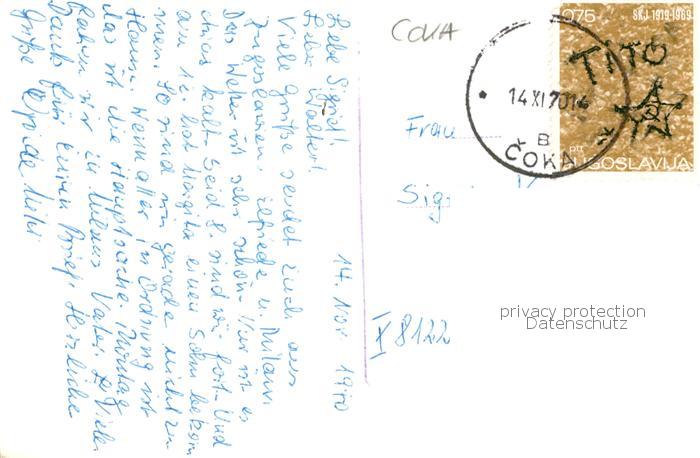 14. Nov. 1970
Liebe Sigrid!
Lieber Walter!
Viele Grüße sendet Euch aus
Jugoslawien, Elfriede u. Milan.
Das Wetter ist sehr schön. Hier ist es
etwas kalt. Seid 8. sind wir fort. Und
am 12. hat Margita einen Sohn bekom
men. So sind wir gerade nicht zu
Hause. Wenn alles in Ordnung ist
das ist die Hauptsache. Montag
fahren wir zu Milans Vater. Viele
Dank für Euren Brief. Herzliche
Grüße
COKA
075
SKJ 1919-1969
TITO
ptt
JUGOSLAVIJA
14 XI 70 16
B
ČOKA
Frau
Sig
X 8122
privacy protection
Datenschutz